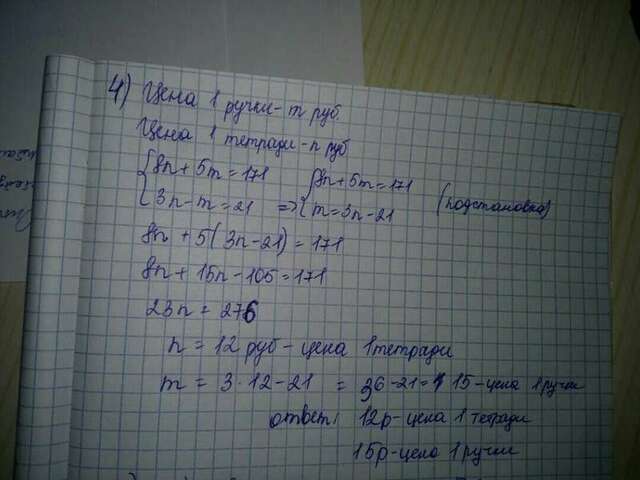 4) Цена 1 ручки - m руб.
Цена 1 тетради - n руб
{8n + 5m = 171 {8n + 5m = 171
{3n - m = 21 => {m = 3n - 21 (подстановка)
8n + 5(3n - 21) = 171
8n + 15n - 105 = 171
23n = 276
n = 12 руб - цена 1 тетради
m = 3 · 12 - 21 = 36 - 21 = 15 - цена 1 ручки
ответ: 12р - цена 1 тетради
15р - цена 1 ручки